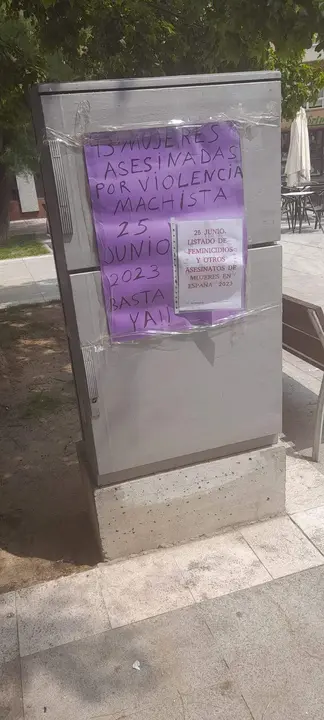 MUJERES
ASESINADAS
POR VIOLENCIA
MACHISTA
25
JUNIO
2023
BASTA
YA!!
25 JUNIO.
LISTADO DE
FEMINICIDIOS
Y OTROS
ASESINATOS DE
MUJERES EN
ESPAÑA 2023